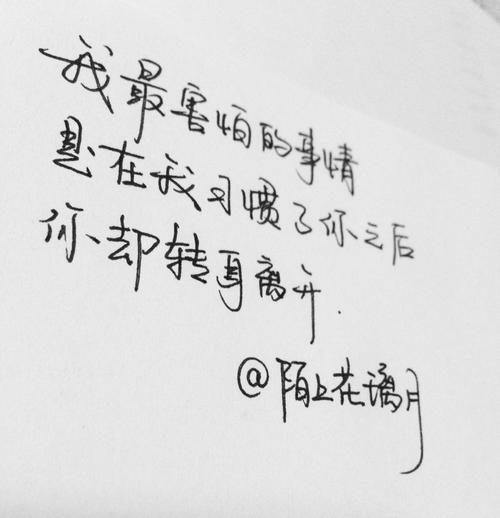 我最害怕的事情
是在我习惯了你之后
你、却转身离开.
@陌上花璃月